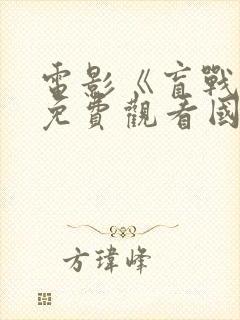 電影《盲戰
免費觀看國
方瑋峰